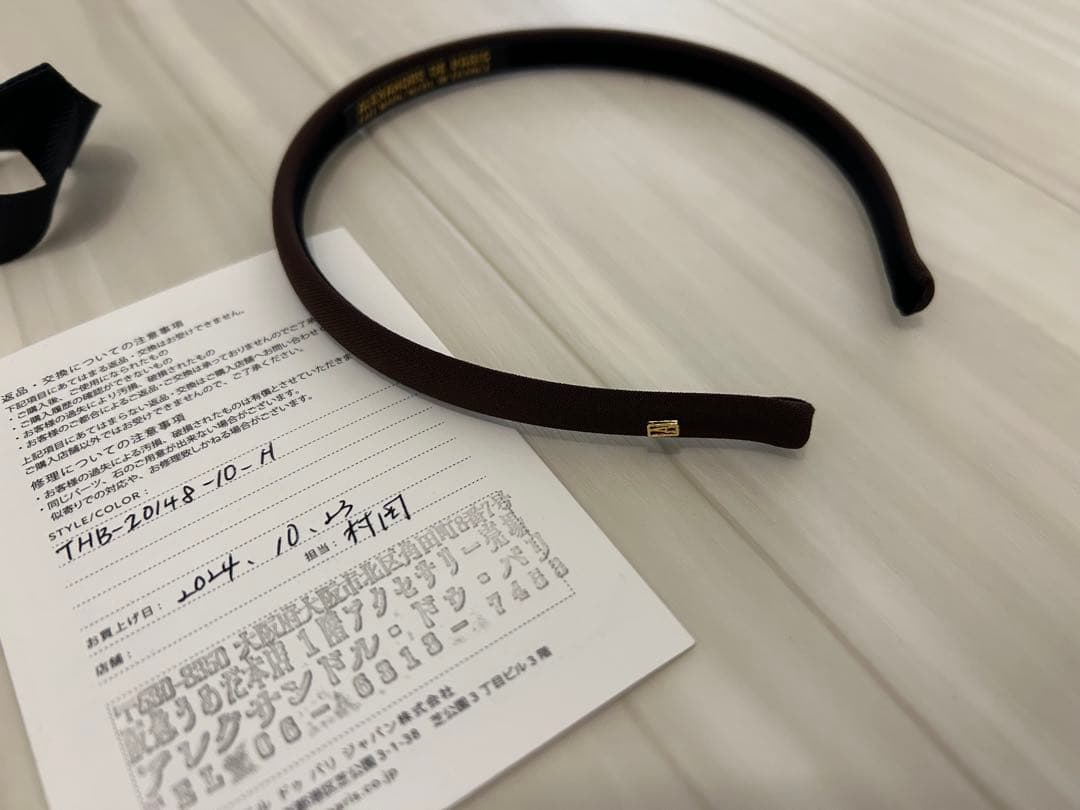 ALEXANDRE DE PARIS
返品・交換についての注意事項
下記項目にあてはまる返品・交換はお受けできません。
・ご購入後、ご使用になられたもの
・ご購入履歴の確認ができないもの
・お客様の過失により汚損、破損されたもの
・お客様のご都合によるご返品・ご交換は承っておりませんのでご了承
上記項目にあてはまらない返品・交換はご購入店舗へお問い合わせ
ご購入店舗以外ではお受けできませんので、ご了承ください。
修理についての注意事項
・お客様の過失による汚損、破損されたものは有償とさせていただきます
・同じパーツ、石のご用意が出来ない場合がございます。
似寄りでの対応や、お修理致しかねる場合がございます。
STYLE/COLOR:
THB-20148-10-H
お買上げ日: 2024. 10. 23 担当: 村岡
店舗:
〒530-8350 大阪府大阪市北区角田町8番7号
阪急うめだ本店1階アクセサリー売場
アレクサンドル・ドゥ・パリ
TEL 06-6313-7488
ル ドゥ パリ ジャパン株式会社
港区芝公園3-1-38 芝公園3丁目ビル3階
paris.co.jp